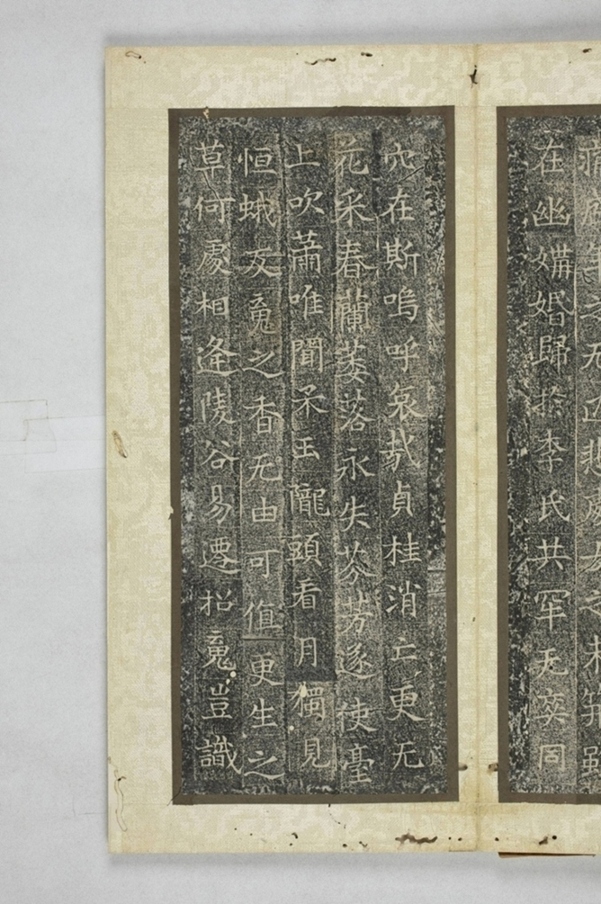 在幽媾婚歸於李氏共牢无奕同
穴在斯嗚呼哀哉貞桂消亡更无
花采春蘭萎落永失芬芳遂使臺
上吹蕭唯聞玉隴頭看月獨見
恒蛾反魂之香无由可值更生之
草何處相逢陵谷易遷招魂豈識